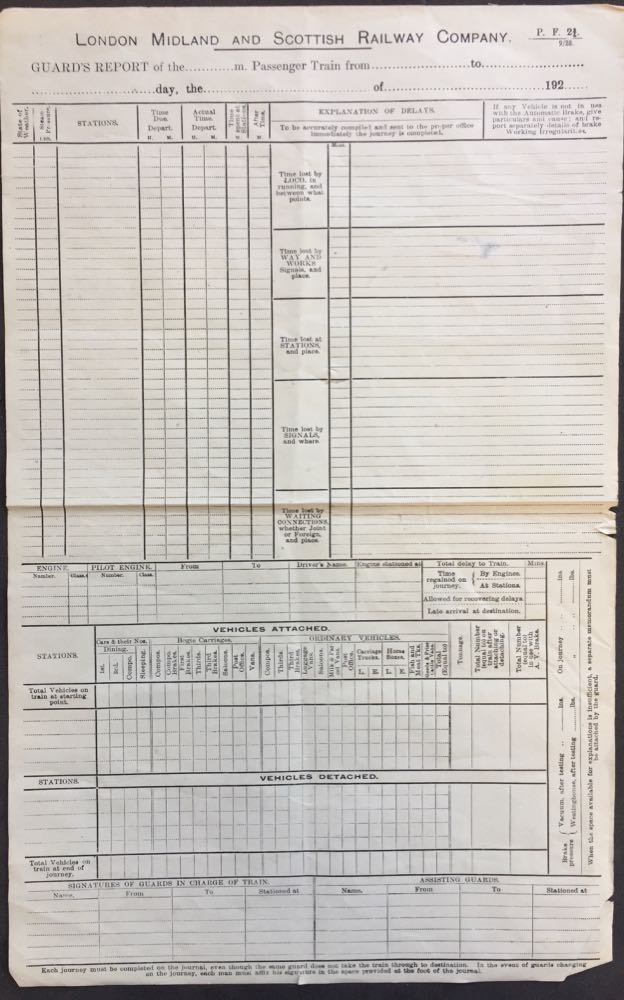 LONDON MIDLAND AND SCOTTISH RAILWAY COMPANY.
P. F. 21.
9/28.
GUARD'S REPORT of the.............m. Passenger Train from.....................to......................
.........................day, the..................................of..................................192......
State of Weather.
Steam Pressure.
STATIONS.
Time Due. Depart.
H. M.
Actual Time. Depart.
H. M.
Time spent at Stations.
M.
After Time.
M.
EXPLANATION OF DELAYS.
To be accurately compiled and sent to the proper office
immediately the journey is completed.
If any Vehicle is not in use
with the Automatic Brake, give
particulars and cause; and re-
port separately details of brake
Working Irregularities.
Mins.
Time lost by
LOCO. in
running, and
between what
points.
Time lost by
WAY AND
WORKS
Signals, and
place.
Time lost at
STATIONS,
and place.
Time lost by
SIGNALS,
and where.
Time lost by
WAITING
CONNECTIONS,
whether Joint
or Foreign,
and place.
ENGINE.
Number. Class.
PILOT ENGINE.
Number. Class.
From
To
Driver's Name.
Engine stationed at
Total delay to Train.
Mins.
Time
regained on
journey.
By Engines.
At Stations.
Allowed for recovering delays.
Late arrival at destination.
VEHICLES ATTACHED.
STATIONS.
Cars & their Nos.
Dining.
1st.
3rd.
Compo.
Sleeping.
Bogie Carriages.
Compos.
Compo. Brakes.
First Brakes.
Thirds.
Third Brakes.
Saloons.
Post Office.
Vans.
ORDINARY VEHICLES.
Compos.
Thirds.
Third Brakes.
Luggage Vans.
Saloons.
Post Office.
Carriage Trucks.
Horse Boxes.
Total (Equal to)
Tonnage.
Total Number (equal to) on train after attaching or detaching.
Total Number (equal to) in use with A. V. Brake.
Total Vehicles on
train at starting
point.
STATIONS.
VEHICLES DETACHED.
Total Vehicles on
train at end of
journey.
Brake pressure
Vacuum, after testing .. ins. On journey .... ins.
Westinghouse, after testing lbs. " .... lbs.
When the space available for explanations is insufficient, a separate memorandum must
be attached by the guard.
SIGNATURES OF GUARDS IN CHARGE OF TRAIN.
Name. From To Stationed at
ASSISTING GUARDS.
Name. From To Stationed at
Each journey must be completed on the journal, even though the same guard does not take the train through to destination. In the event of guards changing
on the journey, each man must affix his signature in the space provided at the foot of the journal.